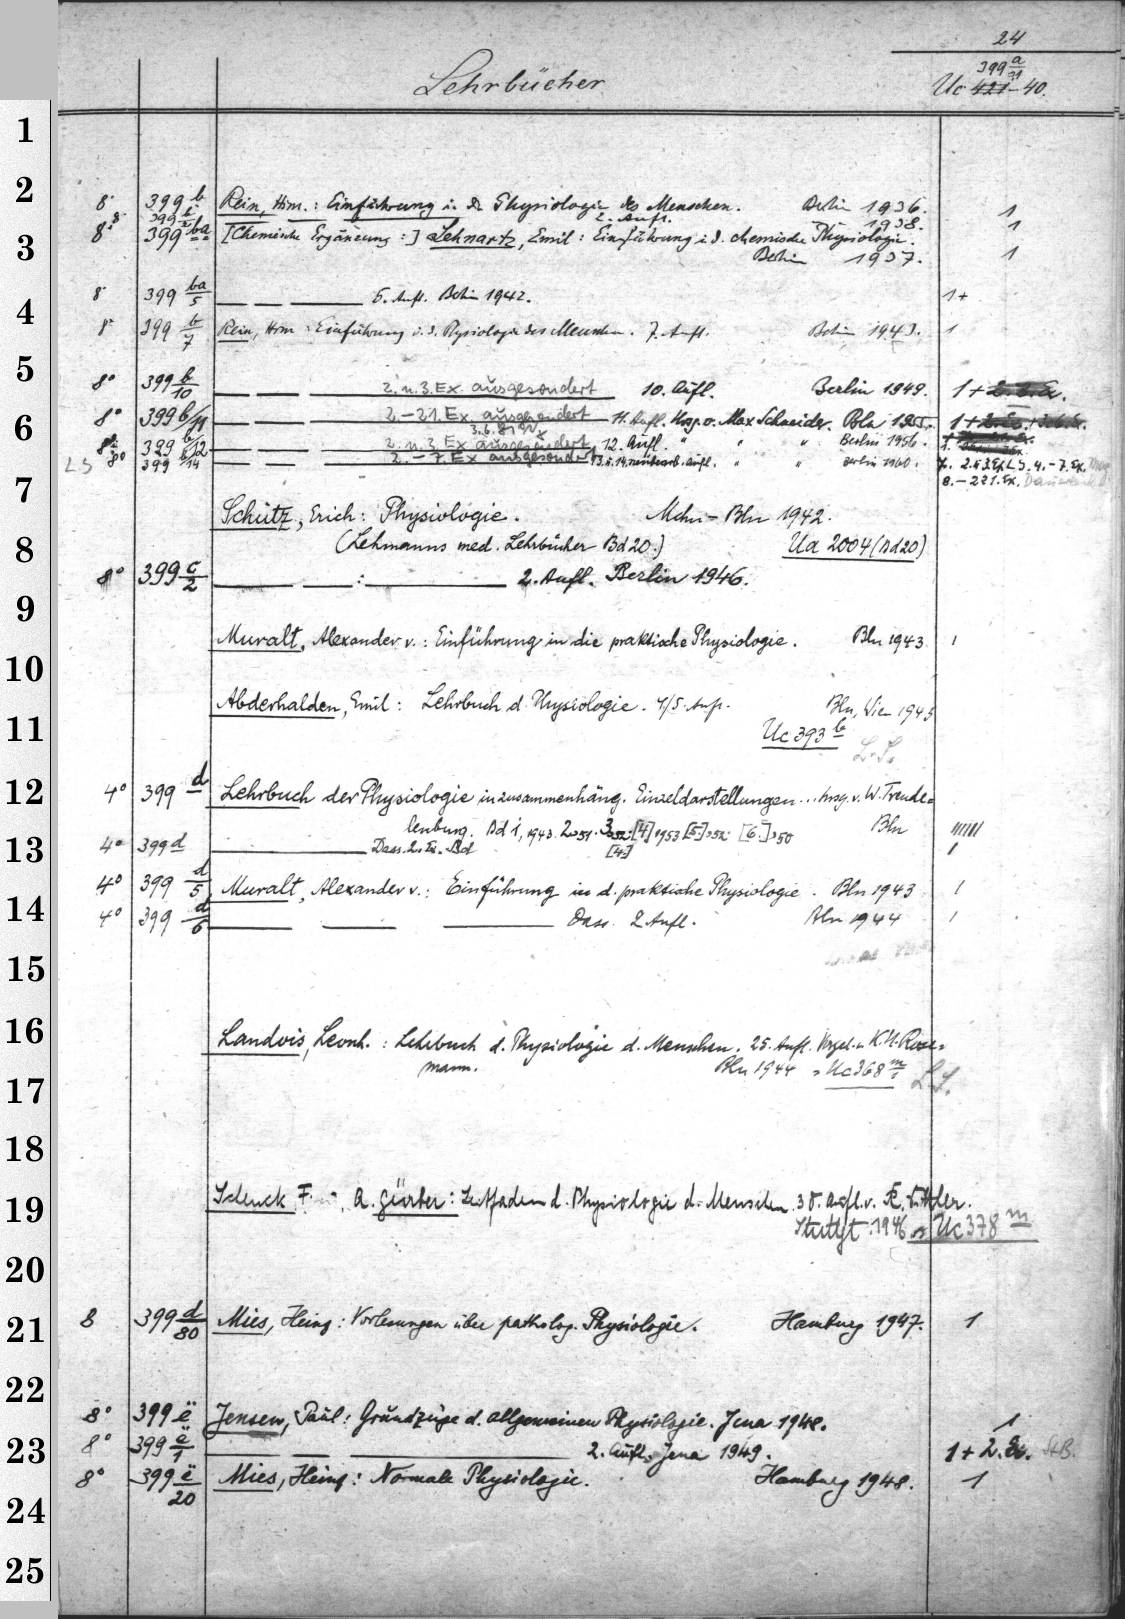 24
Lehrbücher
399 a/31
Uc 421-40.
1
2
8° 399 b Rein, Herm.: Einführung i. d. Physiologie des Menschen. Berlin 1936. 1
8° 399 b/2 2. Aufl. 1938. 1
8° 399 ba [Chemische Ergänzung:] Lehnartz, Emil: Einführung i. d. chemische Physiologie.
3
Berlin 1937. 1
8° 399 ba/5 6. Aufl. Berlin 1942. 1+
4
8° 399 b/7 Rein, Herm: Einführung i. d. Physiologie des Menschen. 7. Aufl. Berlin 1943. 1
5
8° 399 b/10 2. u. 3. Ex. ausgesondert 10. Aufl. Berlin 1949. 1+
6
8° 399 b/11 2.-21. Ex. ausgesondert 11. Aufl. Hrsg. v. Max Schneider. Bln 1955.
8° 399 b/12 2. u. 3. Ex ausgesondert 12. Aufl. " " " Berlin 1956.
LS 8° 399 b/14 2.-7. Ex ausgesondert 13. u. 14. neubearb. Aufl. " " Berlin 1960. 2. u. 3. Ex LS. 4.-7. Ex.
8.-221. Ex.
7
Schütz, Erich: Physiologie. Mchn-Bln 1942.
8
(Lehmanns med. Lehrbücher Bd 20.) Ua 2004 (Bd 20)
8° 399 c/2 : 2. Aufl. Berlin 1946.
9
Muralt, Alexander v.: Einführung in die praktische Physiologie. Bln 1943 1
10
Abderhalden, Emil: Lehrbuch d. Physiologie. 4/5. Aufl. Bln, Wien 1943
11
Uc 393 b
L.S.
12
4° 399 d Lehrbuch der Physiologie in zusammenhäng. Einzeldarstellungen... hrsg. v. W. Trende=
lenburg. Bd 1, 1943. 2 1951. 3 1952. [4] 1953 [5] 1952 [6.] 1950 Bln
13
4° 399 d Dass. 2. Ex. Bd [4]
4° 399 d/5 Muralt, Alexander v.: Einführung in d. praktische Physiologie. Bln 1943 1
14
4° 399 d/6 Dass. 2. Aufl. Bln 1944 1
15
16
Landois, Leonh.: Lehrbuch d. Physiologie d. Menschen. 25. Aufl. v. K. H. Rose=
mann. Bln 1944 = Uc 368 m/1 L.S.
17
18
19
Schenck, F. A. Gürber: Leitfaden d. Physiologie d. Menschen. 30. Aufl. v.
Stuttgt. 1946 Uc 378 m
20
21
8 399 d/80 Mies, Heinz: Vorlesungen über patholog. Physiologie. Hamburg 1947. 1
22
8° 399 ë Jensen, Paul: Grundzüge d. allgemeinen Physiologie. Jena 1948. 1
23
8° 399 ë/1 2. Aufl. Jena 1949. 1 + 2. Ex. StB.
8° 399 ë/20 Mies, Heinz: Normale Physiologie. Hamburg 1948. 1
24
25